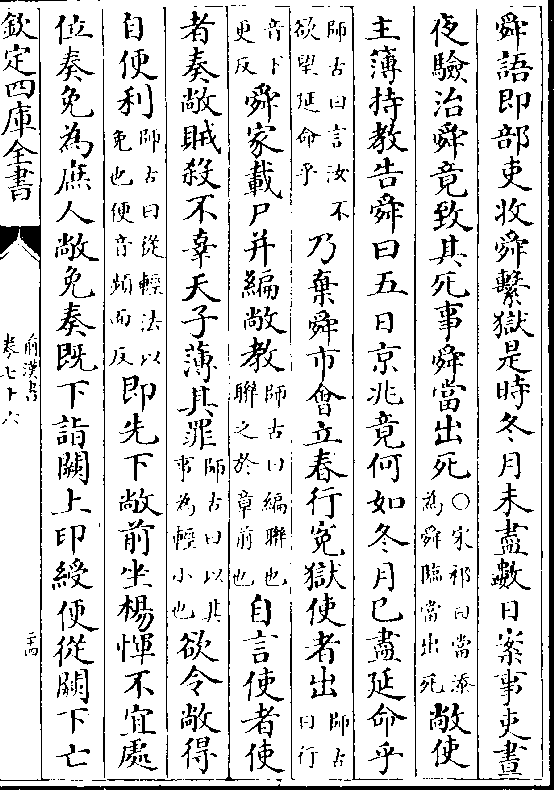 舜語即部吏收舜繫獄是時冬月未盡數日案事吏晝
夜驗治舜竟致其死事舜當出死〇宋祁曰當添為舜臨當出死敞使
主簿持教告舜曰五日京兆竟何如冬月已盡延命乎
師古曰言汝不欲望延命乎乃棄舜市會立春行寃獄使者出師古曰行
音下更反舜家載尸并編敞教師古曰編聯也聯之於章前也自言使者使
者奏敞賊殺不辜天子薄其罪師古曰以其事為輕小也欲令敞得
自便利師古曰從輕法以免也便音頻面反即先下敞前坐楊惲不宜處
位奏免為庶人敞免奏既下詣闕上印綬便從闕下亡
欽定四庫全書
前漢書
卷七十六
二十四